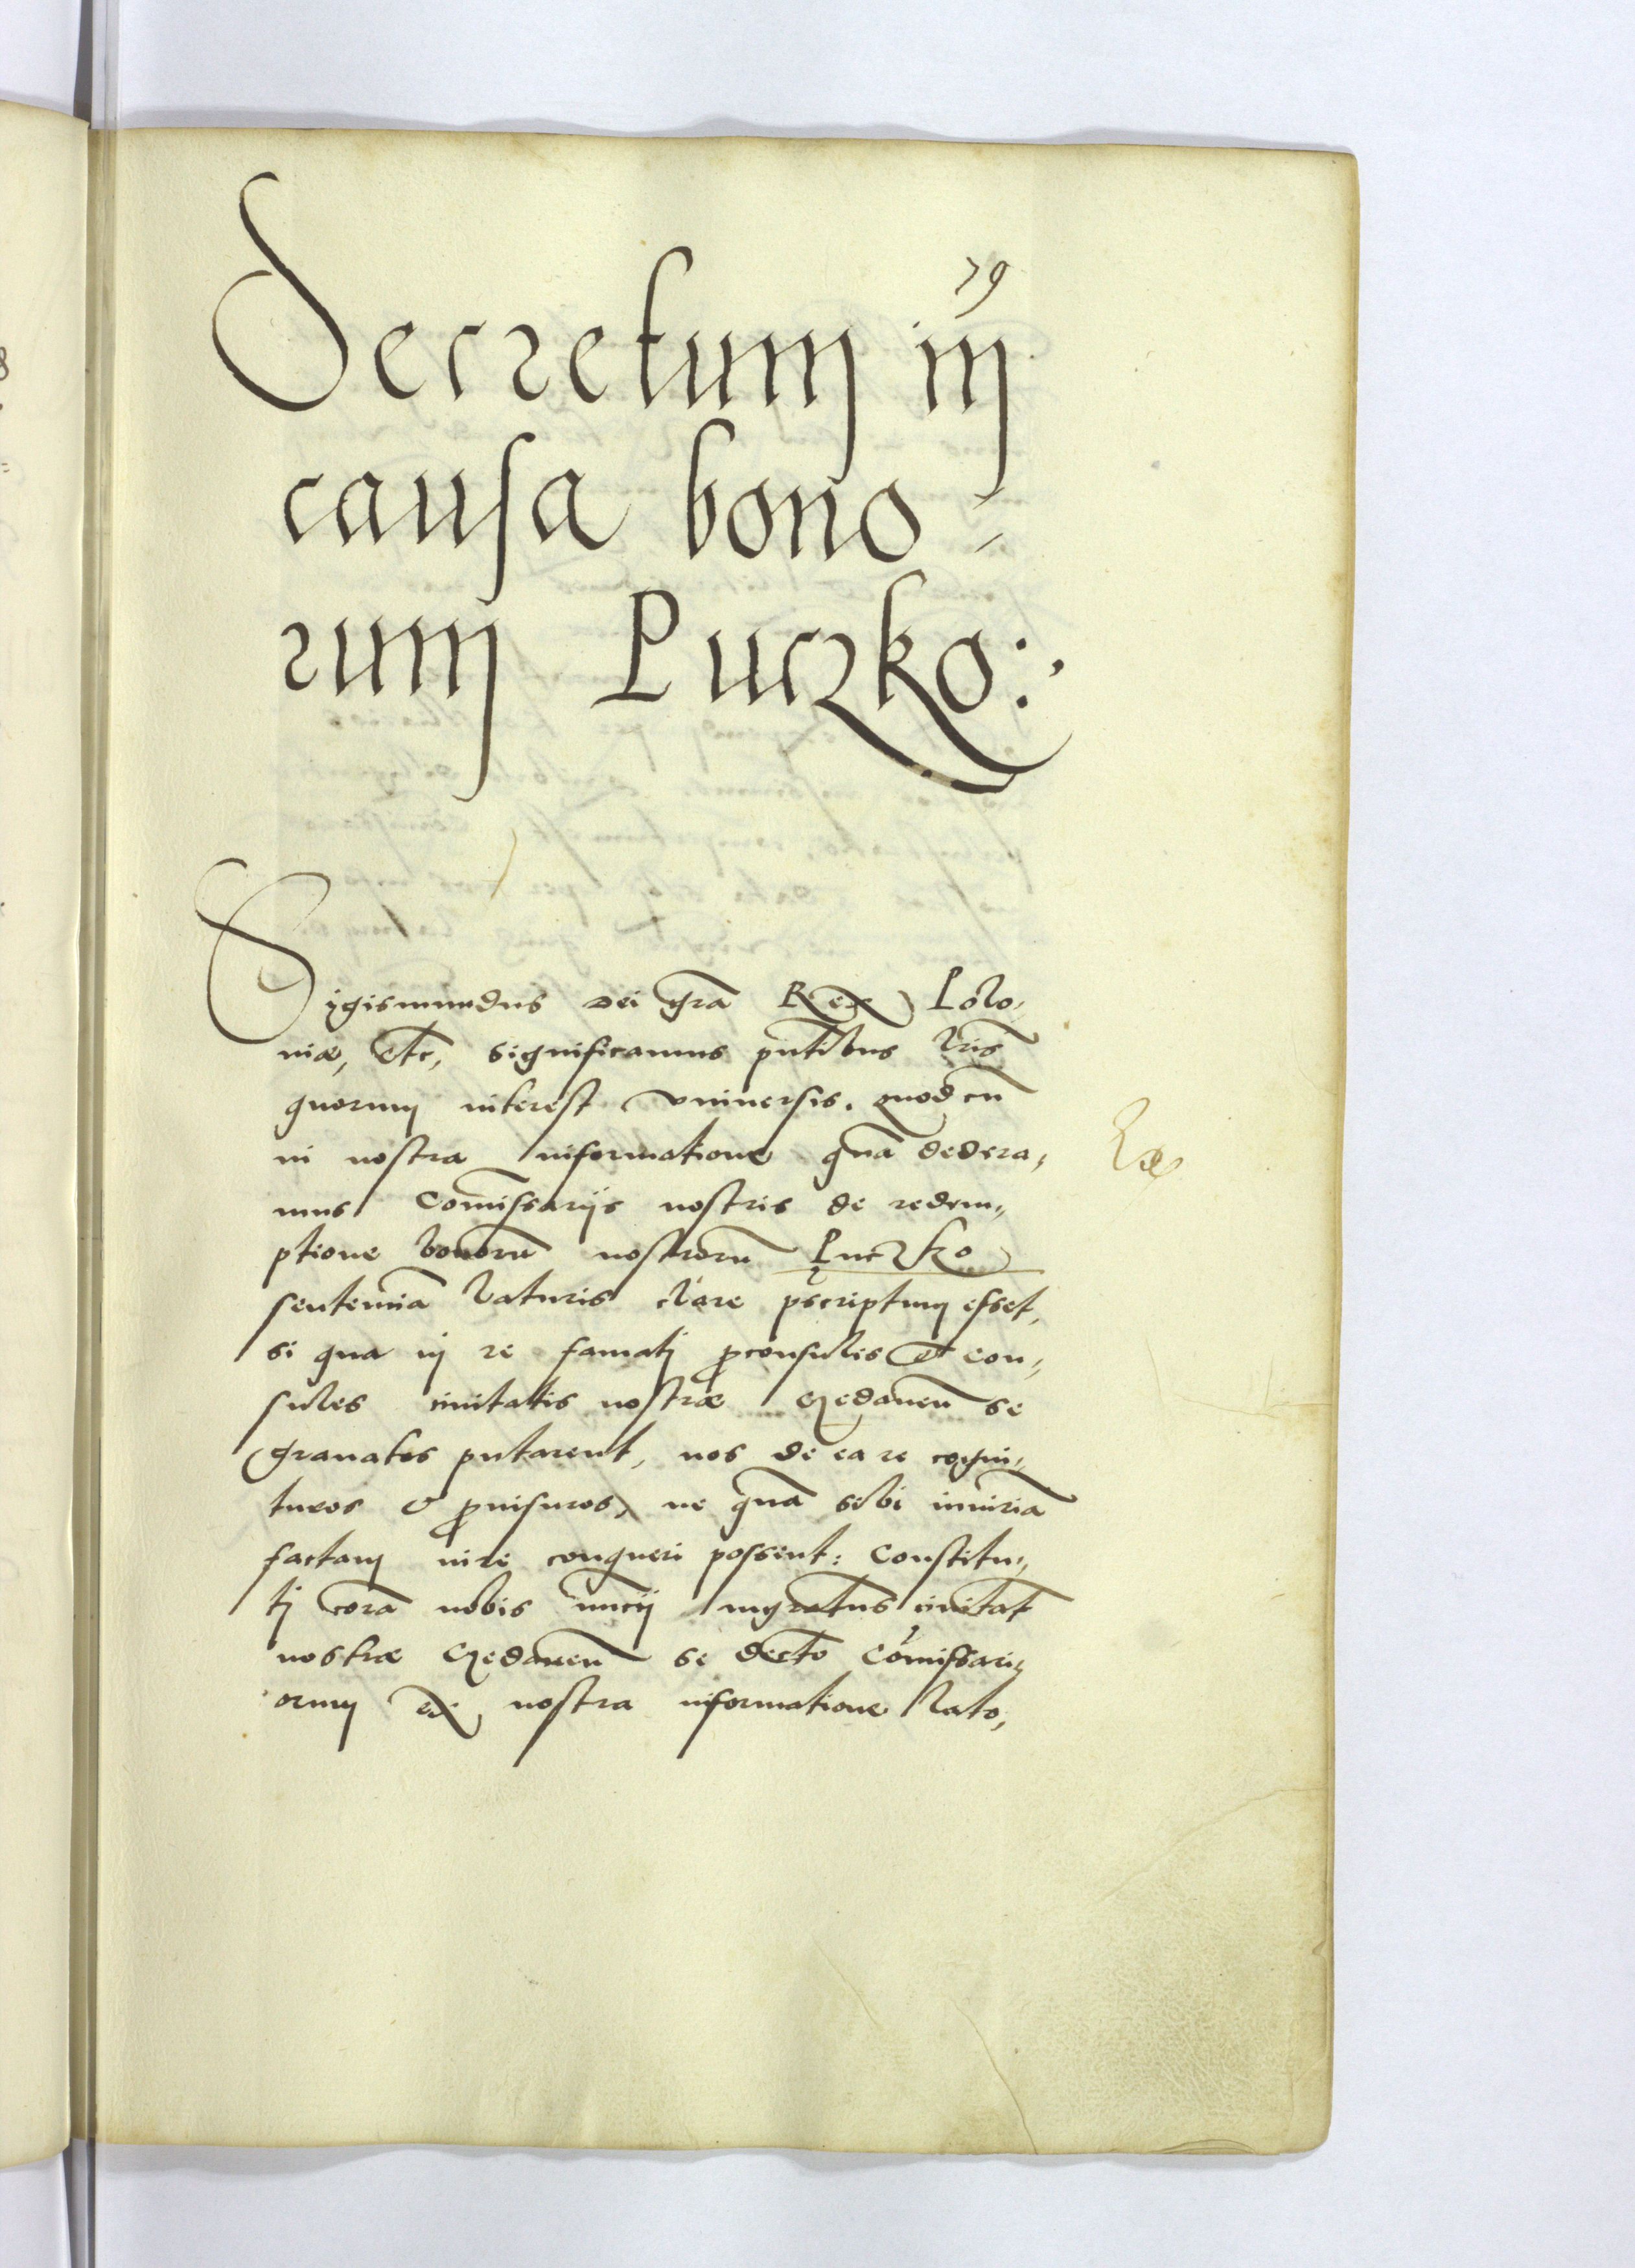 79
Decretum in
causa bono=
rum Puczko:
Sigismundus dei gra͞ Rex Polo,
niæ, etc, significamus pn͞tibus lr͞is
quorum interest vniuersis. quod cu͞
in nostra informatione qua͞ dedera,
mus Com͞issarijs nostris de redem,
ptione bonoru͞ nostroru͞ Puczko
sentemia͞ laturis clare pscriptum esset,
si qua in re famatj proconsules et con,
sules ciuitatis nostræ Gedanen͞ se
grauatos putarent, nos de ea re cogni,
turos & prouisuros, ne qua͞ sibi iniuria͞
factam iure conqueri possent: Constitu,
tj cora͞ nobis nuncij ciuitat͞
nostræ Gedanen͞ se decto Com͞issari,
orum ex nostra informatione lato,